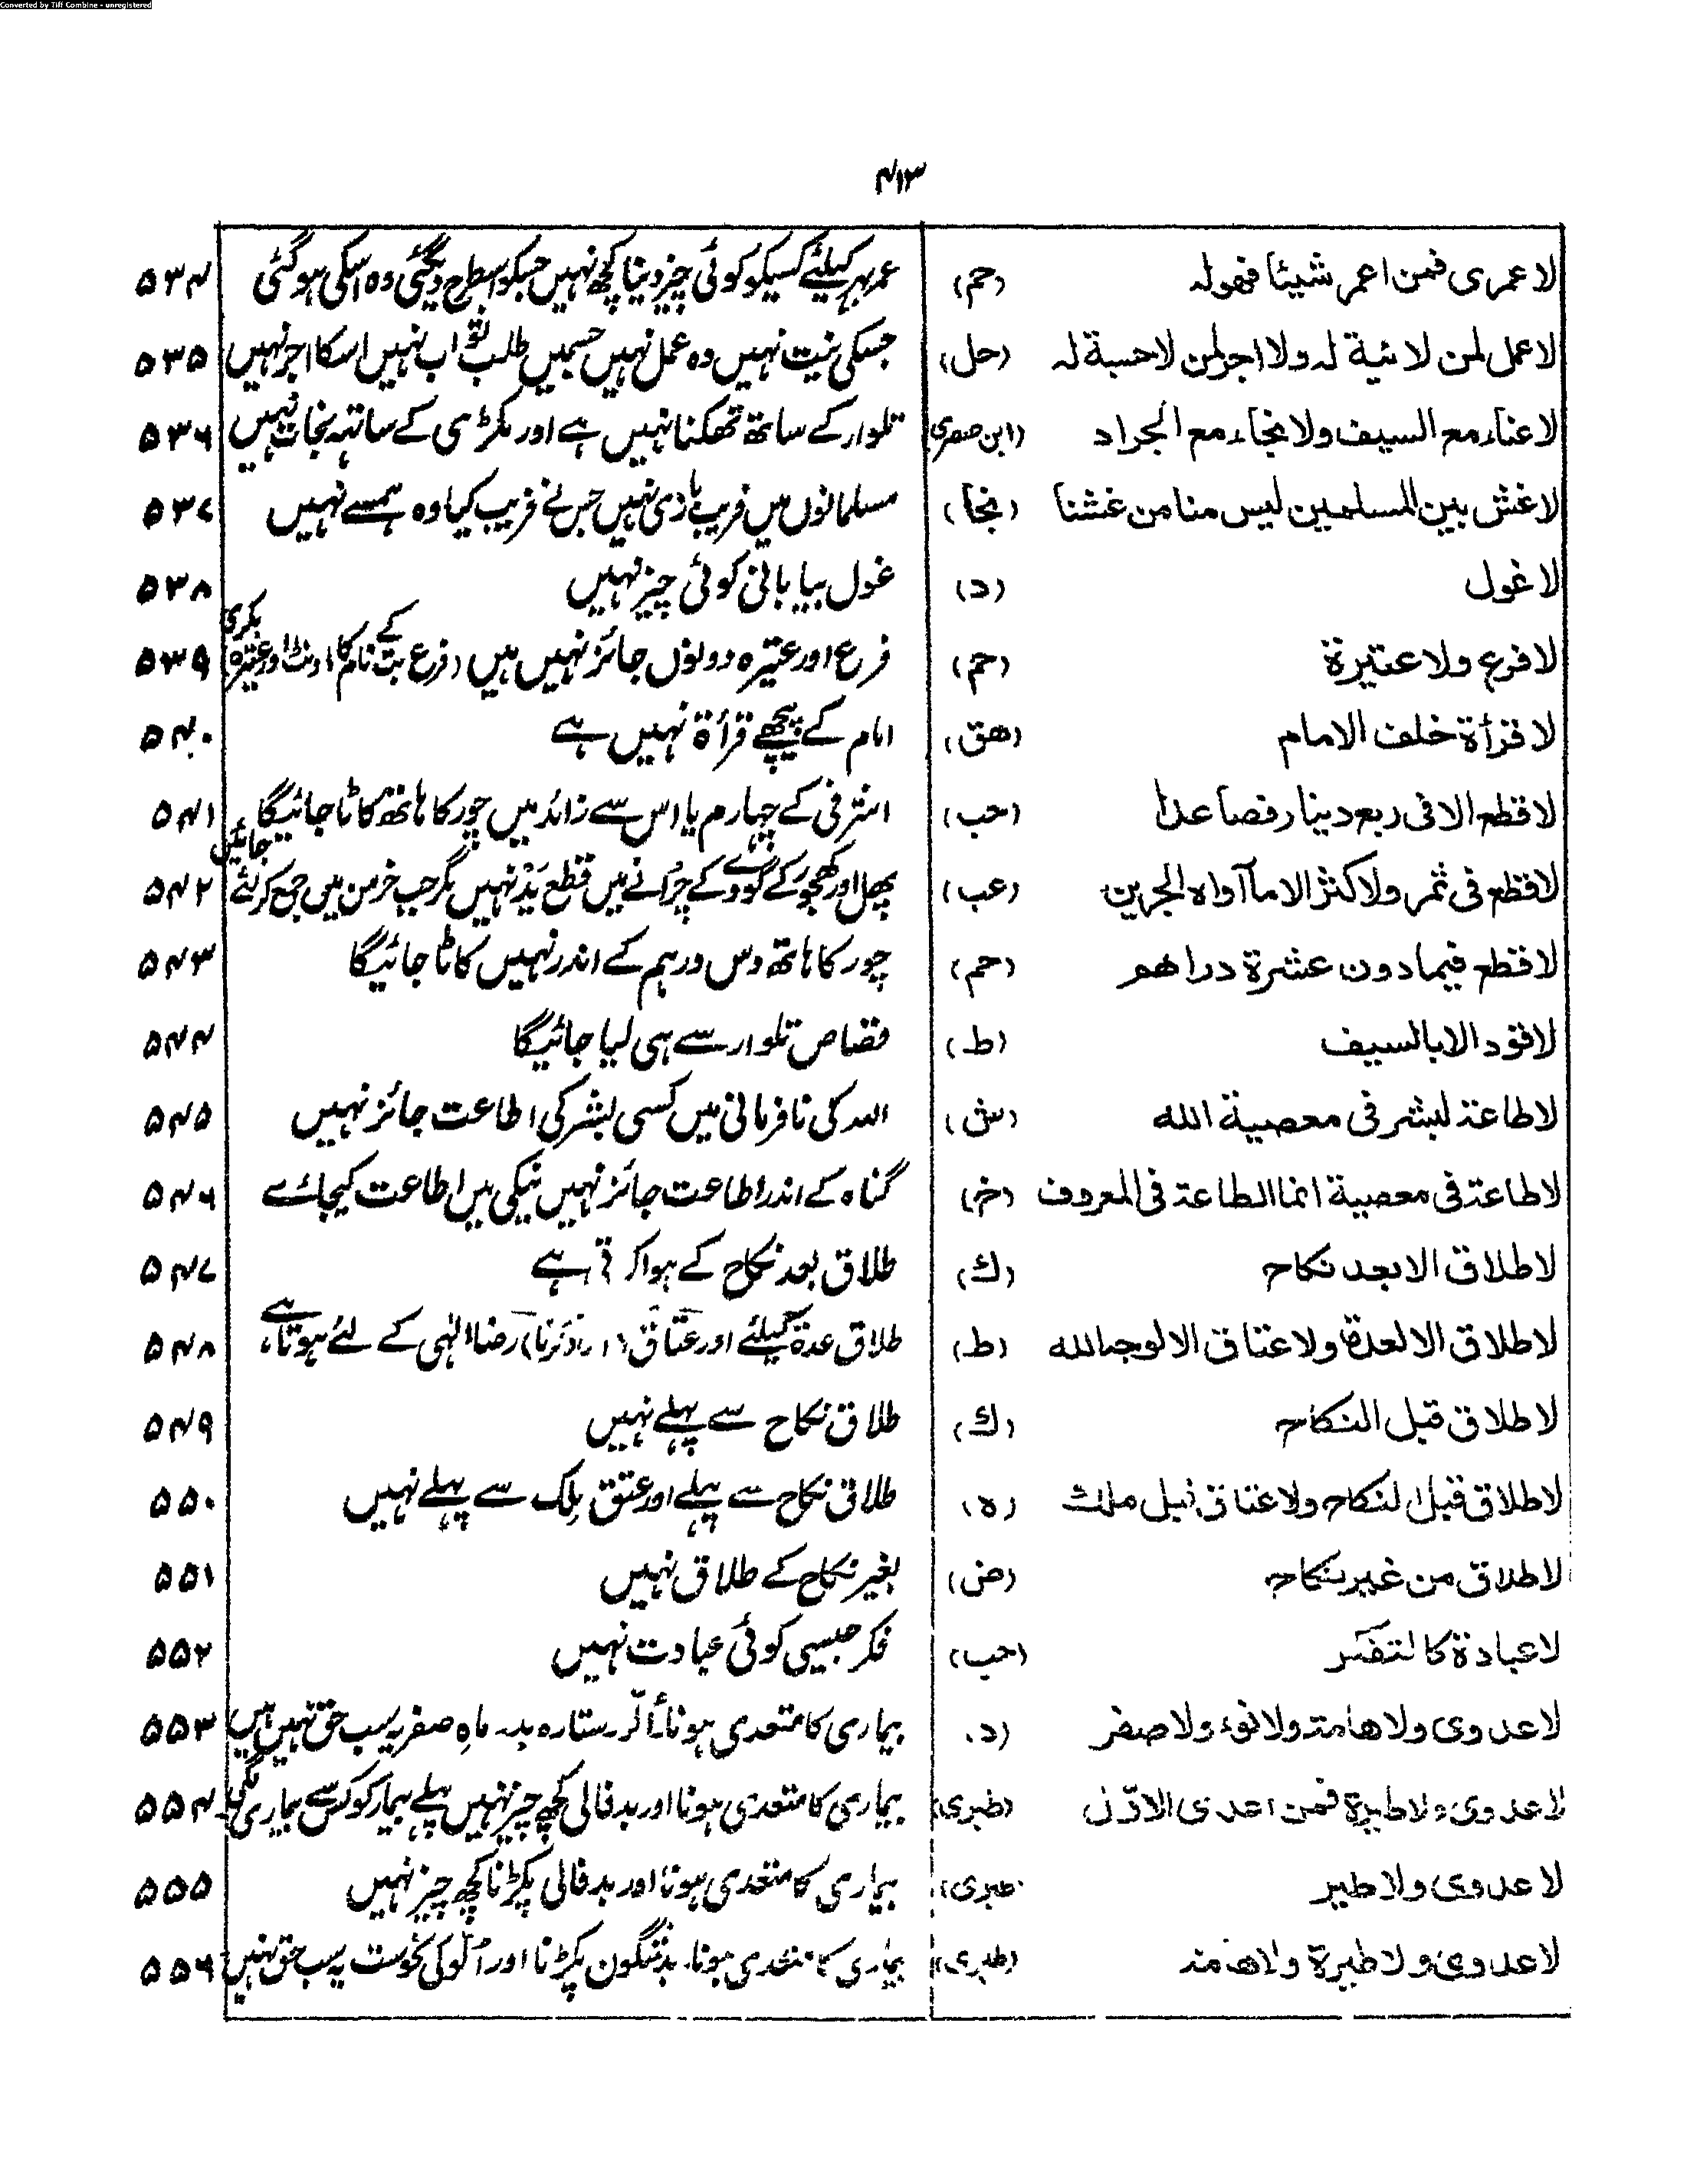 Converted by Tiff Combine - unregistered
۴۱۳
لا عمری فمن اعمر شیئا فهوله (حم) عمر بھر کیلئے کسیکو کوئی چیز دینا کچھ نہیں جسکو اسطرح دیگئی وہ اسکی ہوگئی ۵۳۴
لا عمل لمن لا نیة له ولا اجر لمن لا حسبة له (حل) جسکی نیت نہیں وہ عمل نہیں جسمیں طلب ثواب نہیں اسکا اجر نہیں ۵۳۵
لا عناء مع السیف ولا نجاء مع الجراد (ابن صصری) تلوار کے ساتھ تھکنا نہیں ہے اور مکڑی کے ساتھ نجات نہیں ۵۳۶
لا غش بین المسلمین لیس منا من غشنا (نجا) مسلمانوں میں فریب بازی نہیں جس نے فریب کیا وہ ہمسے نہیں ۵۳۷
لا غول (د) غول بیابانی کوئی چیز نہیں ۵۳۸
لا فرع ولا عتیرة (حم) فرع اور عتیرہ دونوں جائز نہیں ہیں (فرع بت کے نام کا اونٹ اور عتیرہ بکری ۵۳۹
لا قرأة خلف الامام (هق) امام کے پیچھے قرأۃ نہیں ہے ۵۴۰
لا قطع الا فی ربع دینار فصاعدا (حب) اشرفی کے چہارم یا اس سے زائد میں چور کا ہاتھ کاٹا جائیگا ۵۴۱
لا قطع فی ثمر ولا کثر الا ما آواه الجرین (عب) پھل اور کھجور کے گودے کے چرانے میں قطع ید نہیں مگر جب خرمن میں جمع کر لئے جائیں ۵۴۲
لا قطع فیما دون عشرة دراهم (حم) چور کا ہاتھ دس درہم کے اندر نہیں کاٹا جائیگا ۵۴۳
لا قود الا بالسیف (ط) قصاص تلوار سے ہی لیا جائیگا ۵۴۴
لا طاعة لبشر فی معصیة الله (ش) اللہ کی نافرمانی میں کسی بشر کی اطاعت جائز نہیں ۵۴۵
لا طاعة فی معصیة انما الطاعة فی المعروف (خ) گناہ کے اندر اطاعت جائز نہیں نیکی میں اطاعت کیجائے ۵۴۶
لا طلاق الا بعد نکاح (ك) طلاق بعد نکاح کے ہوا کرتی ہے ۵۴۷
لا طلاق الا لعدة ولا عتاق الا لوجه الله (ط) طلاق عدۃ کیلئے اور عتاق (آزاد کرنا) رضاء الٰہی کے لئے ہوتا ہے ۵۴۸
لا طلاق قبل النکاح (ك) طلاق نکاح سے پہلے نہیں ۵۴۹
لا طلاق قبل النکاح ولا عتاق قبل ملك (ه) طلاق نکاح سے پہلے اور عتق مِلک سے پہلے نہیں ۵۵۰
لا طلاق من غیر نکاح (ض) بغیر نکاح کے طلاق نہیں ۵۵۱
لا عبادة کالتفکر (حب) فکر جیسی کوئی عبادت نہیں ۵۵۲
لا عدوی ولا هامة ولا نوء ولا صفر (د) بیماری کا متعدی ہونا۔ الّو۔ ستارہ بد۔ ماہِ صفر یہ سب حق نہیں ہیں ۵۵۳
لا عدوی ولا طیرة فمن اعدی الاوّل (طبری) بیماری کا متعدی ہونا اور بد فالی کچھ چیز نہیں پہلے بیمار کو کس سے بیماری لگی ۵۵۴
لا عدوی ولا طیر (طبری) بیماری کا متعدی ہونا اور بد فالی پکڑنا کچھ چیز نہیں ۵۵۵
لا عدوی ولا طیرة ولا هامة (طبری) بیماری کا متعدی ہونا۔ بدشگون پکڑنا اور اُلّو کی نحوست یہ سب حق نہیں ۵۵۶